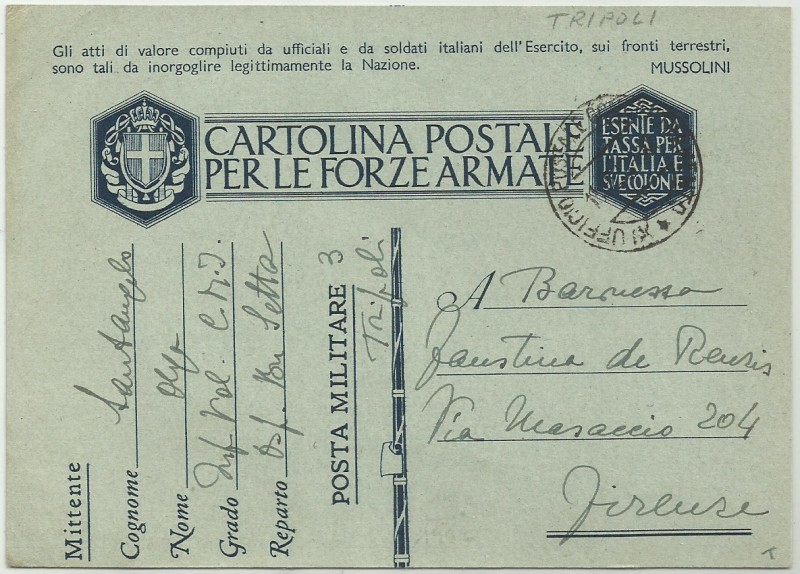 TRIPOLI
Gli atti di valore compiuti da ufficiali e da soldati italiani dell'Esercito, sui fronti terrestri,
sono tali da inorgoglire legittimamente la Nazione. MUSSOLINI
CARTOLINA POSTALE
PER LE FORZE ARMATE
ESENTE DA
TASSA PER
L'ITALIA E
SVE COLONIE
XI UFFICIO
A Baronessa
Faustina de Renzis
Via Masaccio 204
Firenze
Mittente
Cognome Santangelo
Nome Olga
Grado Inf. Vol. C.R.I.
Reparto Osp. Bu Setta
POSTA MILITARE 3
Tripoli